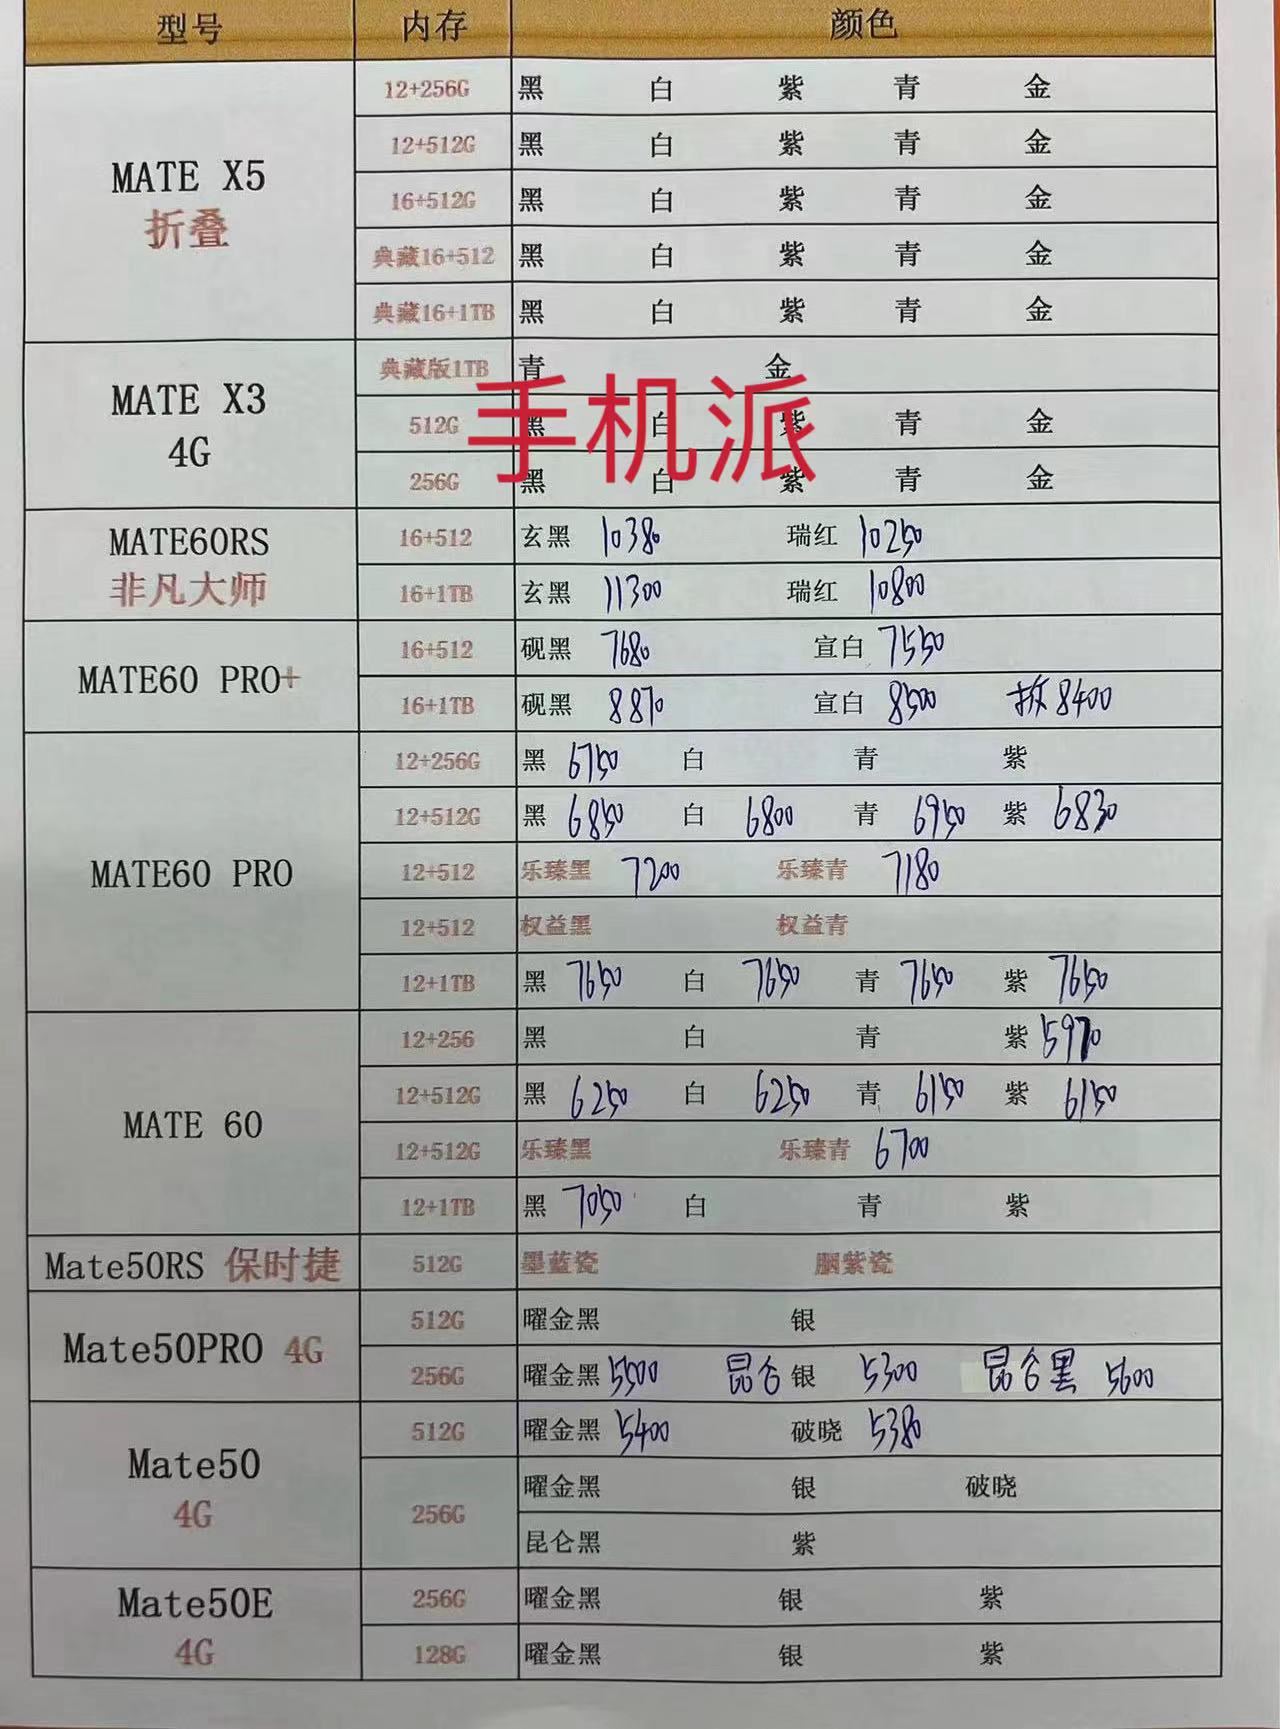 型号 内存 颜色
MATE X5
折叠
12+256G 黑 白 紫 青 金
12+512G 黑 白 紫 青 金
16+512G 黑 白 紫 青 金
典藏16+512 黑 白 紫 青 金
典藏16+1TB 黑 白 紫 青 金
MATE X3
4G
典藏版1TB 青 金
512G 黑 白 紫 青 金
256G 黑 白 紫 青 金
手机派
MATE60RS
非凡大师
16+512 玄黑 10380 瑞红 10250
16+1TB 玄黑 11300 瑞红 10800
MATE60 PRO+
16+512 砚黑 7680 宣白 7550
16+1TB 砚黑 8870 宣白 8500 拆 8400
MATE60 PRO
12+256G 黑 6750 白 青 紫
12+512G 黑 6850 白 6800 青 6950 紫 6830
12+512 乐臻黑 7200 乐臻青 7180
12+512 权益黑 权益青
12+1TB 黑 7650 白 7650 青 7650 紫 7650
MATE 60
12+256 黑 白 青 紫 5970
12+512G 黑 6250 白 6250 青 6150 紫 6150
12+512G 乐臻黑 乐臻青 6700
12+1TB 黑 7050 白 青 紫
Mate50RS 保时捷 512G 墨蓝瓷 胭紫瓷
Mate50PRO 4G
512G 曜金黑 银
256G 曜金黑 5500 昆仑 银 5300 昆仑黑 5600
Mate50
4G
512G 曜金黑 5400 破晓 5380
256G 曜金黑 银 破晓
昆仑黑 紫
Mate50E
4G
256G 曜金黑 银 紫
128G 曜金黑 银 紫